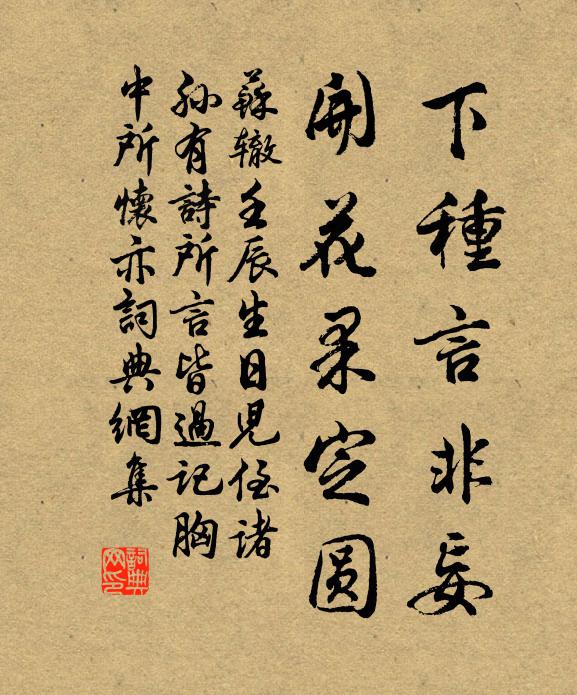 下種言非妄
開花果定圓
蘇辙壬辰生日見侄諸
孫有詩所言皆過記胸
中所懷亦詞典網集
詞典网印